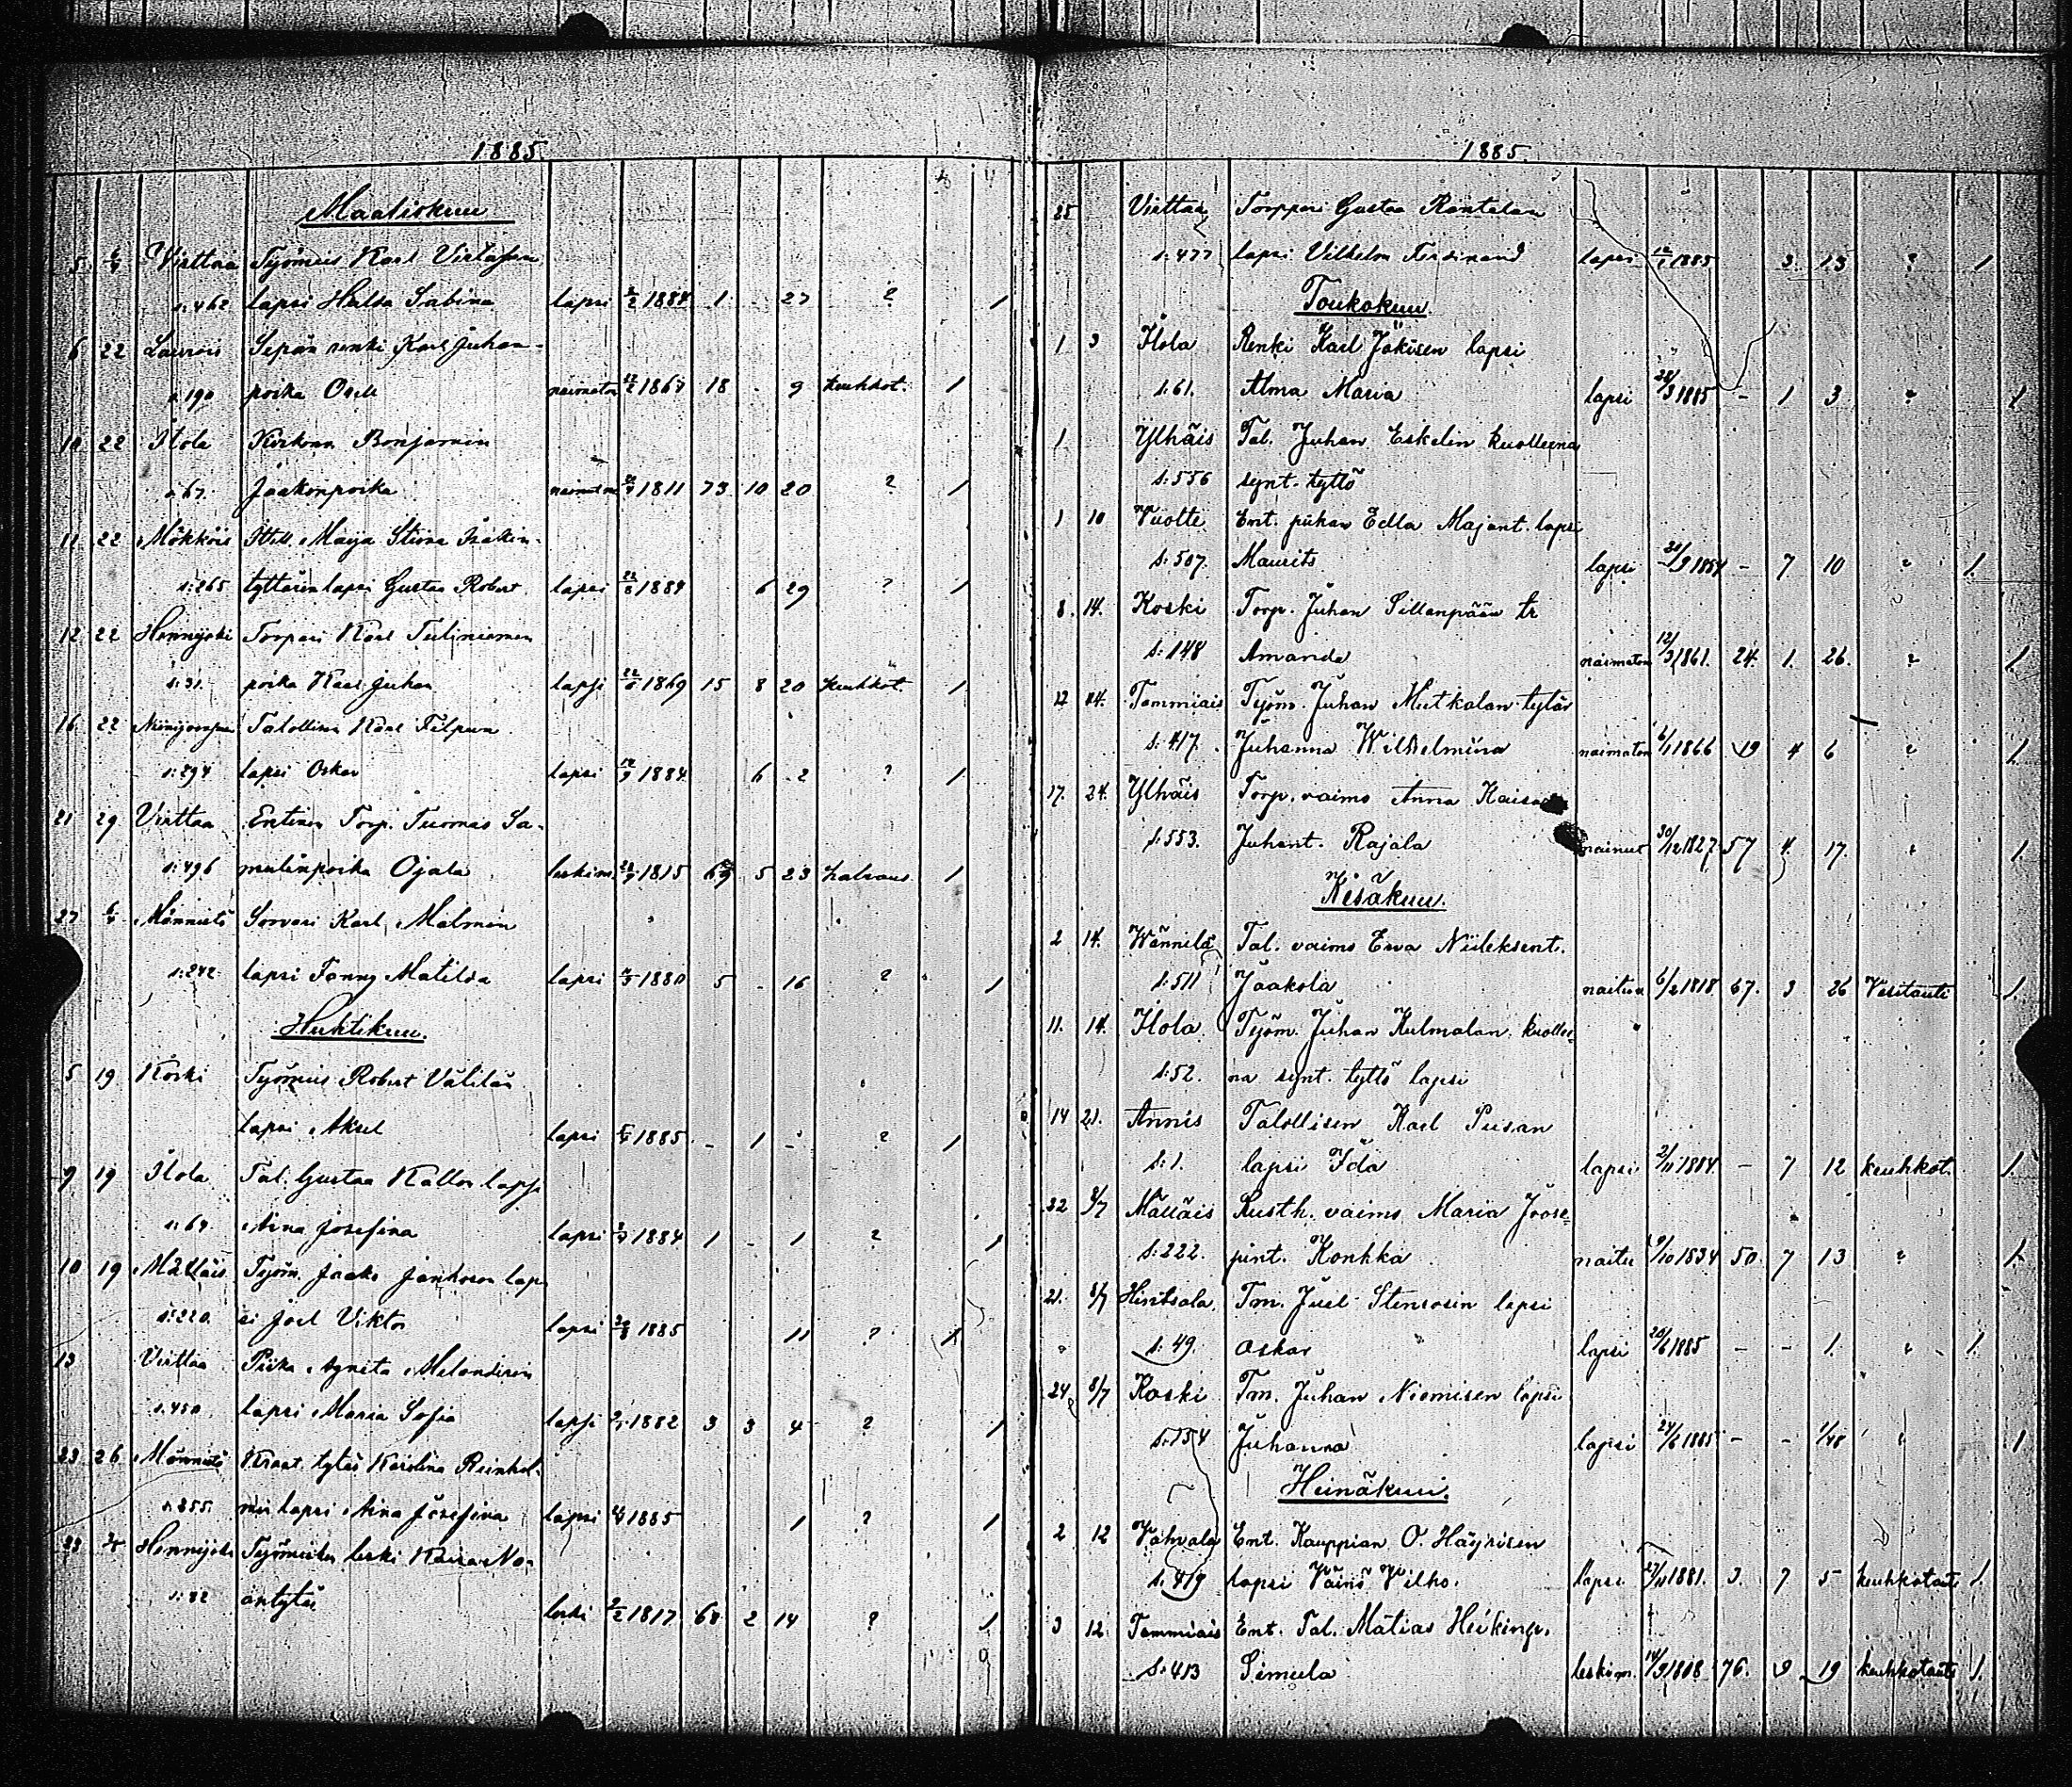 1885
Maaliskuu
5 6/4 Virttaa Työmies Karl
s:462 lapsi Hulda Sabina lapsi 2/2 1884 1 - 27 ? 1
6 22 Sepän renki Karl Juhan-
s:190 poika naimaton 1867 18 - 9 keuhkot. 1
10 22 Ilola Benjamin
s:67 Jaakonpoika naimaton 1811 73 10 20 ? 1
11 22 Mökköis Ittell. Maija Stiina
s:265 tyttären lapsi Gustaa Robert lapsi 22/8 1884 6 29 ? 1
12 22 Hennijoki Torpari Karl
s:31 poika Karl Juhan lapsi 1869 15 8 20 keuhkot. 1
16 22 Talollisen Karl Filpun
s:294 lapsi Oskar lapsi 1884 6 2 ? 1
21 29 Virttaa Entinen Torp. Tuomas Sa-
s:496 muelinpoika Ojala leskim. 1815 69 5 23 halvaus 1
27 6/4 Männistö Sorvari Karl Malmin
s:242 lapsi Fanny Matilda lapsi 1880 5 - 16 ? 1
Huhtikuu.
5 19 Koski Työmies Robert Välilän
lapsi Aksel lapsi 1885 - 1 - ? 1
9 19 Ilola Tal. Gustaa Kallon lapsi
s:64 Aina Josefina lapsi 1884 1 - 1 ? 1
10 19 Mälläis Työm. Jaako lap
s:220. si Joel Viktor lapsi 1885 11 ? 1
13 Virttaa Piika Agneta Melanderin
s:450 lapsi Maria Sofia lapsi 1882 3 3 4 ? 1
23 26 Männistö tytär Karolina Reinhol-
s:255. min lapsi Aina Josefina lapsi 1885 1 ? 1
Hennijoki Työmiehen leski Kaisa No-
s:32 antytär leski 1817 2 14 ? 1
1885
25 Virttaa Torppari Gustaa Rantalan
s:477 lapsi Vilhelm Ferdinand lapsi 1885 3 13 ? 1
Toukokuu.
1 3 Ilola Renki Karl Jokisen lapsi
s:61. Alma Maria lapsi 28/3 1885 - 1 3 " 1
1 Ylhäis Tal. Juhan Eskelin kuolleena
s:556 synt. tyttö
1 10 Vuolte Ent. piikan Edla Majant. lapsi
s:507. Maurits lapsi 21/9 1884 - 7 10 " 1.
8. 14. Koski Torp. Juhan Sillanpään tr
s:148 Amanda naimaton 12/3 1861. 24. 1. 26. " 1.
12 24. Tammiais Työm. Juhan Mutkalan tytär
s:417. Juhanna Wilhelmina naimaton 6/1 1866 19 4 6 " 1.
17. 24. Ylhäis Torp. vaimo Anna Kaisa
s:553. Juhant. Rajala nainut 30/12 1827 57 4. 17. " 1.
Kesäkuu.
2 14. Wännilä Tal. vaimo Eeva Niileksent.
s:511 Jaakola naitu 6/2 1818 67. 3 26 Vesitauti 1.
11. 14. Ilola Työm. Juhan Kulmalan kuollee-
s:52. na synt. tyttö lapsi
14 21. Annis Talollisen Karl Piisan
s:1. lapsi Ida lapsi 2/11 1884. - 7 12 keuhkot. 1.
22 5/7 Mälläis Rusth. vaimo Maria Joose-
s:222. pint. Konhka naitu 9/10 1834 50. 7 13 " 1.
21. 5/7 Hintsala Tm. Juel Stenrosin lapsi
s:49. Oskar lapsi 20/6 1885 - - 1. " 1.
24 5/7 Koski Tm. Juhan Niemisen lapsi
s:154 Juhanna lapsi 24/6 1885 - - 1/48 " 1
Heinäkuu.
2 12 Vahvala Ent. Kauppian O. Häyrisen
s:419 lapsi Väinö Vilho. lapsi 27/11 1881. 3. 7 5 keuhkotauti 1.
3 12. Tammiais Ent. Tal. Matias Heikinp.
s:413 Simula leskim. 14/9 1808 76. 9 19 keuhkotauti 1.